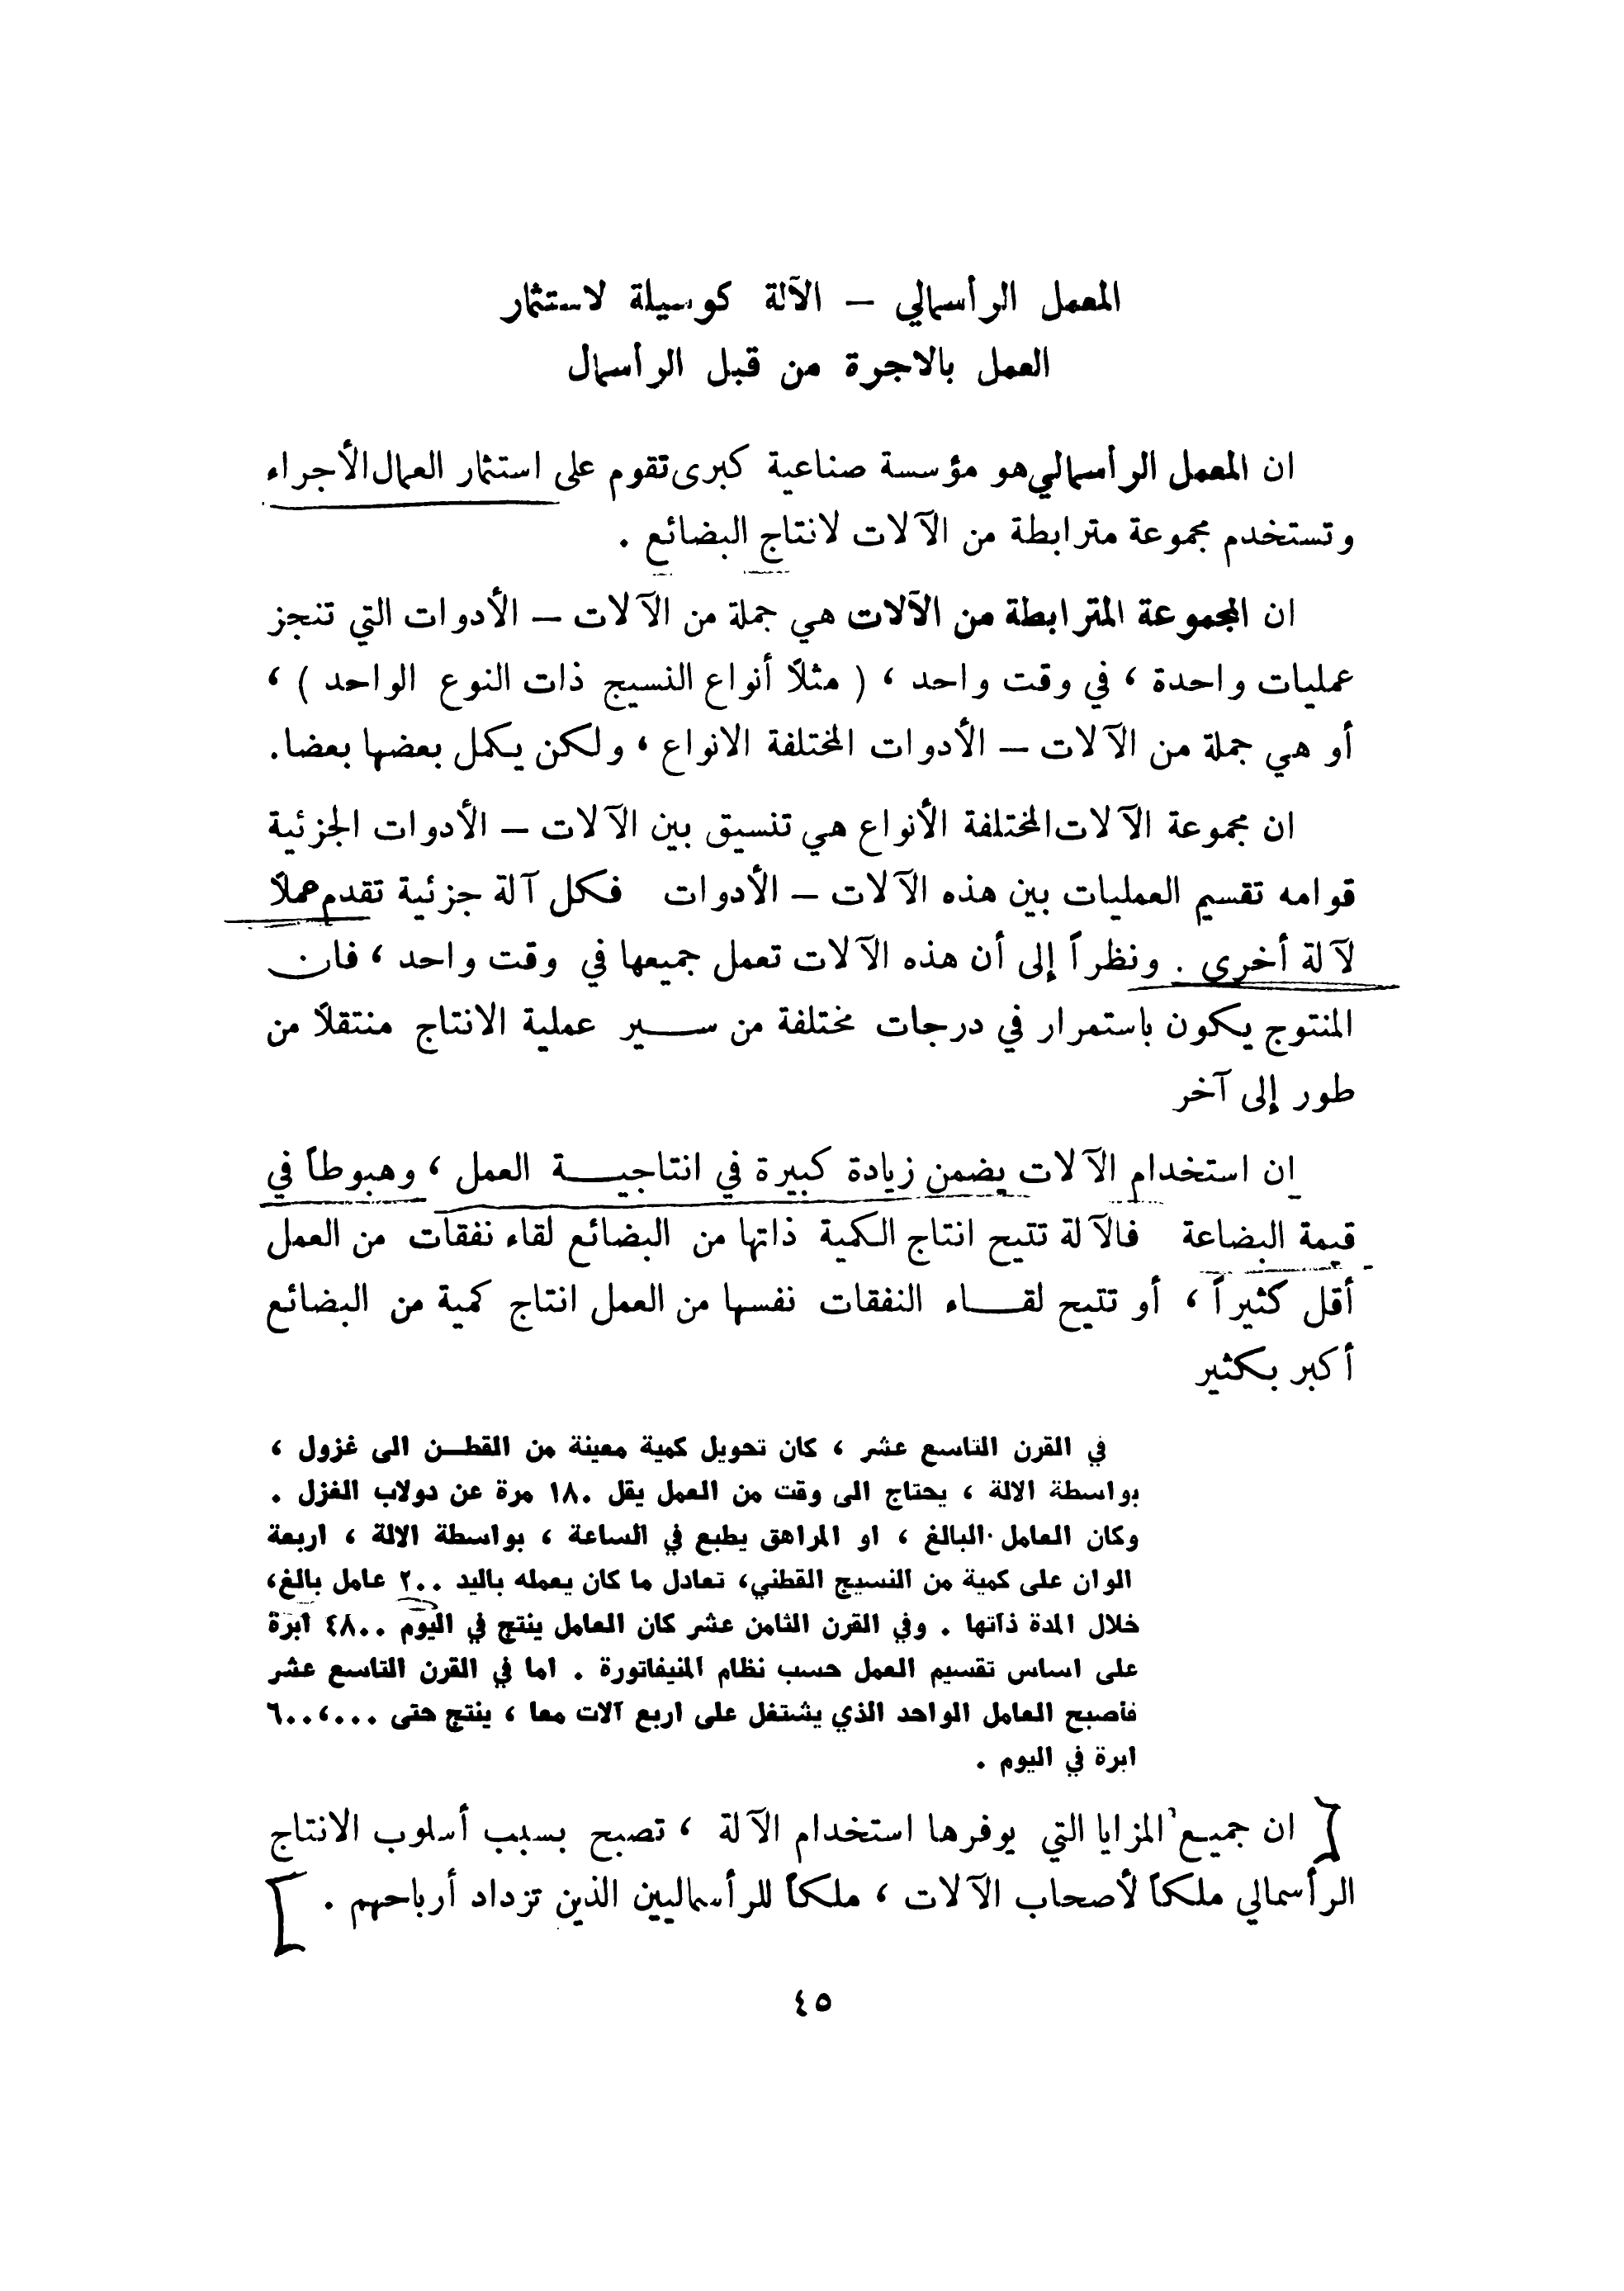 المعمل الرأسمالي – الآلة كوسيلة لاستثمار
العمل بالاجرة من قبل الرأسمال
ان المعمل الرأسمالي هو مؤسسة صناعية كبرى تقوم على استثمار العمال الأجراء
وتستخدم مجموعة مترابطة من الآلات لانتاج البضائع .
ان المجموعة المترابطة من الآلات هي جملة من الآلات – الأدوات التي تنجز
عمليات واحدة ، في وقت واحد ، ( مثلاً أنواع النسيج ذات النوع الواحد ) ،
أو هي جملة من الآلات – الأدوات المختلفة الانواع ، ولكن يكمل بعضها بعضا.
ان مجموعة الآلات المختلفة الأنواع هي تنسيق بين الآلات – الأدوات الجزئية
قوامه تقسيم العمليات بين هذه الآلات – الأدوات فكل آلة جزئية تقدم عملاً
لآلة أخرى . ونظراً إلى أن هذه الآلات تعمل جميعها في وقت واحد ، فان
المنتوج يكون باستمرار في درجات مختلفة من ســير عملية الانتاج منتقلاً من
طور إلى آخر
ان استخدام الآلات يضمن زيادة كبيرة في انتاجيــة العمل ، وهبوطاً في
قيمة البضاعة فالآلة تتيح انتاج الكمية ذاتها من البضائع لقاء نفقات من العمل
أقل كثيراً ، أو تتيح لقــاء النفقات نفسها من العمل انتاج كمية من البضائع
أكبر بكثير
في القرن التاسع عشر ، كان تحويل كمية معينة من القطــن الى غزول ،
بواسطة الالة ، يحتاج الى وقت من العمل يقل ١٨٠ مرة عن دولاب الغزل .
وكان العامل البالغ ، او المراهق يطبع في الساعة ، بواسطة الالة ، اربعة
الوان على كمية من النسيج القطني، تعادل ما كان يعمله باليد ٢٠٠ عامل بالغ،
خلال المدة ذاتها . وفي القرن الثامن عشر كان العامل ينتج في اليوم ٤٨٠٠ ابرة
على اساس تقسيم العمل حسب نظام المنيفاتورة . اما في القرن التاسع عشر
فاصبح العامل الواحد الذي يشتغل على اربع آلات معا ، ينتج حتى ٦٠٠،٠٠٠
ابرة في اليوم .
ان جميع المزايا التي يوفرها استخدام الآلة ، تصبح بسبب أسلوب الانتاج
الرأسمالي ملكاً لأصحاب الآلات ، ملكاً للرأسماليين الذين تزداد أرباحهم .
٤٥